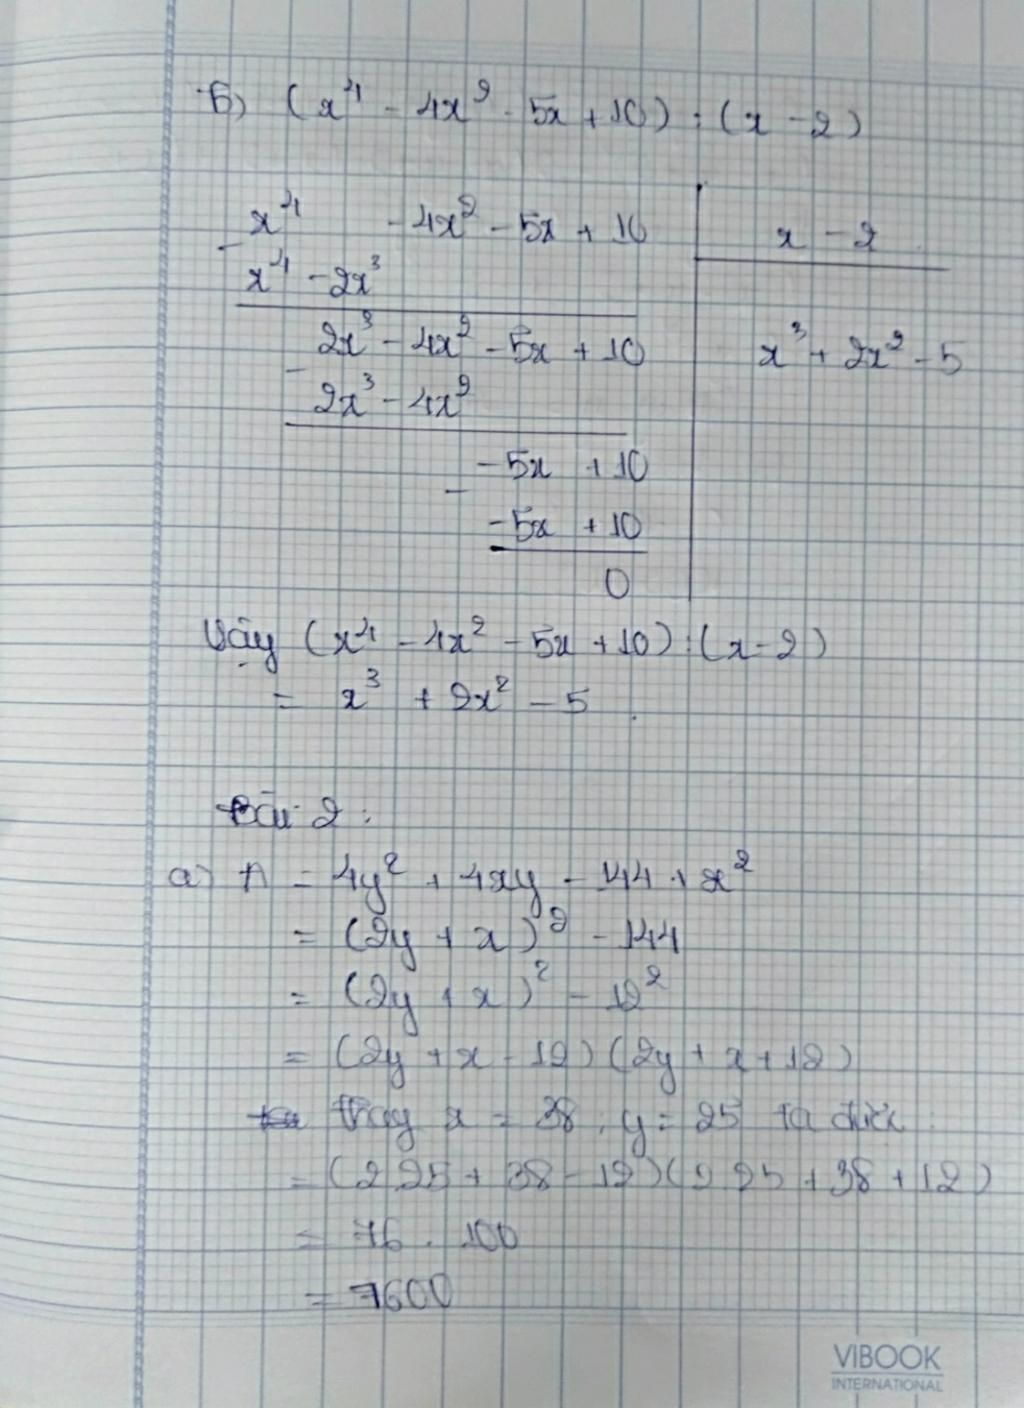 b) (x⁴ - 4x² - 5x + 10) : (x - 2)
x⁴ - 4x² - 5x + 10 | x - 2
- x⁴ - 2x³
2x³ - 4x² - 5x + 10 | x³ + 2x² - 5
- 2x³ - 4x²
-5x + 10
- -5x + 10
0
Vậy (x⁴ - 4x² - 5x + 10) : (x - 2)
= x³ + 2x² - 5
Bài 2 :
a) A = 4y² + 4xy - 144 + x²
= (2y + x)² - 144
= (2y + x)² - 12²
= (2y + x - 12) (2y + x + 12)
thay x = 38 , y = 25 ta được :
= (2.25 + 38 - 12) (2.25 + 38 + 12)
= 76 . 100
= 7600
VIBOOK
INTERNATIONAL